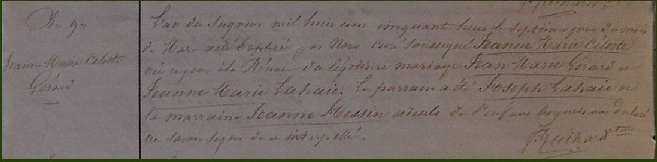 Jeanne Marie Celeste
Gérard
L'an du Seigneur mil huit cent cinquante huit le septième jour du mois
de Mai a été baptisé par Nous curé soussigné Jeanne Marie Celeste
née à la du légitime mariage Jean Marie Gérard et
Jeanne Marie Lahaie. Le parrain a été Joseph Lahaie et
la marraine Jeanne Messin aieuls de l'enfant lesquels ont déclaré
ne savoir signer de ce interpellé.
J. Guihard